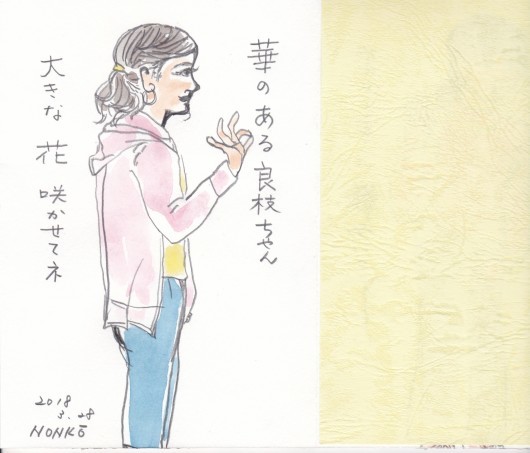 華のある良枝ちゃん
大きな花咲かせてネ
2018
3.28
NONKO